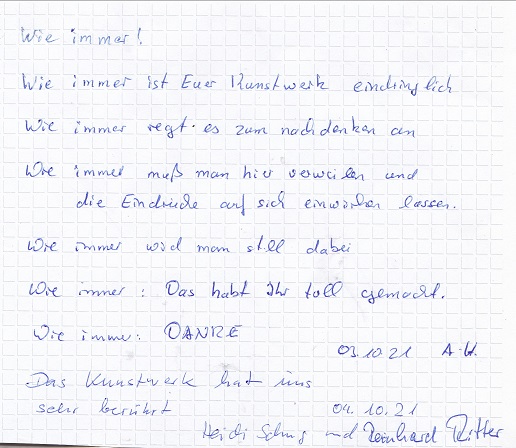 Wie immer!
Wie immer ist Euer Kunstwerk eindringlich
Wie immer regt es zum nachdenken an
Wie immer muß man hier verweilen und
die Eindrücke auf sich einwirken lassen.
Wie immer wird man still dabei
Wie immer: Das habt Ihr toll gemacht.
Wie immer: DANKE
03.10.21 A.W.
Das Kunstwerk hat uns
sehr berührt
04.10.21
Heidi und Reinhard Ritter